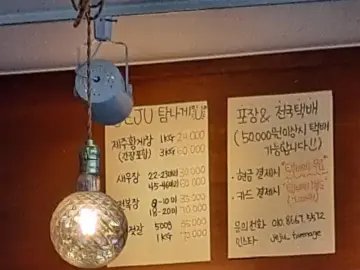 JEJU 탐나게
제주황게장 1KG 24.000
(간장포함) 3KG 60.000
새우장 22-23 30.000
45-46 60.000
전복장 8-10 35.000
18-20 70.000
젓갈 500g
1KG 70.000
포장 & 전국택배
(50.000원이상시 택배
가능합니다!!)
· 현금 결제시
· 카드 결제시
문의전화 010.8667.5572
인스타 jeju